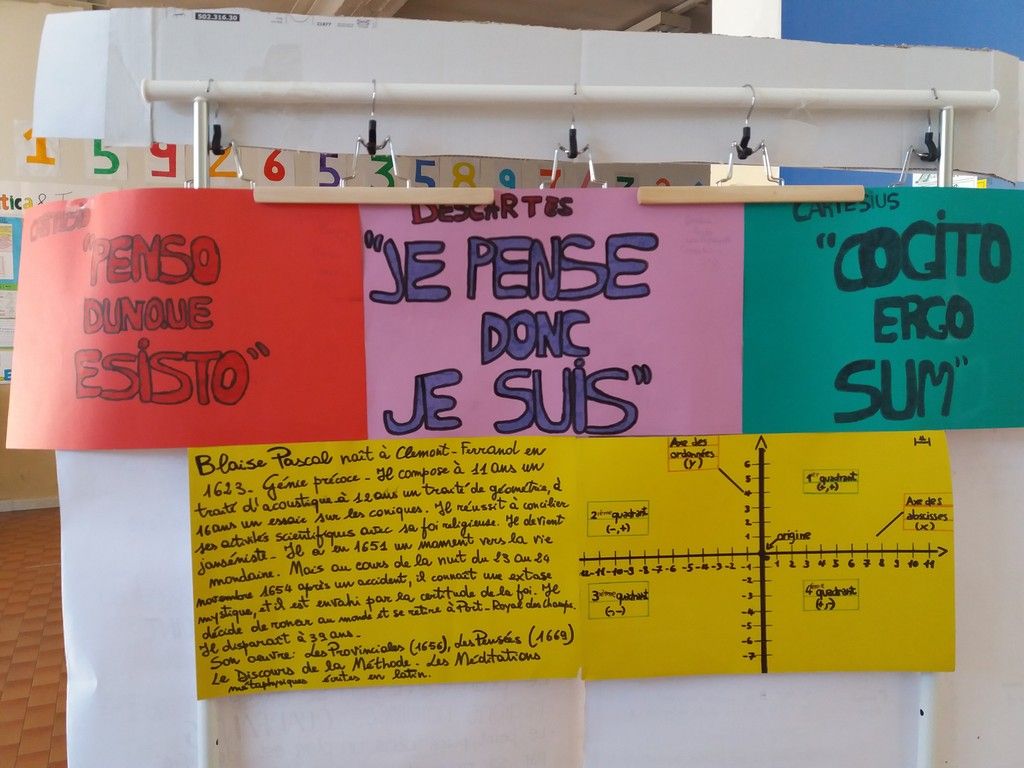 502.316.30
1 5 9 2 6 5 3 5 8 9 7
tica &
CARTESIO
"PENSO
DUNQUE
ESISTO"
DESCARTES
"JE PENSE
DONC
JE SUIS"
CARTESIUS
"COGITO
ERGO
SUM"
Blaise Pascal naît à Clemont-Ferrand en
1623. Génie précoce. Il compose à 11 ans un
traité d'acoustique à 12 ans un traité de géométrie, à
16 ans un essaie sur les coniques. Il réussit à concilier
ses activités scientifiques avec sa foi religieuse. Il devient
janséniste. Il a en 1651 un moment vers la vie
mondaine. Mais au cours de la nuit du 23 au 24
novembre 1654 après un accident, il connaît une extase
mystique, et il est envahi par la certitude de la foi. Il
décide de renoer au monde et se retire à Port-Royal des Champs.
Il disparaît à 39 ans.
Son oeuvre: Les Provinciales (1656), Les Pensées (1669)
Le Discours de la Méthode. Les Méditations
métaphysiques écrites en latin.
Axe des
ordonnées
(y)
1er quadrant
(+,+)
2ième quadrant
(-,+)
Axe des
abscisses
(x)
origine
3ième quadrant
(-,-)
4ième quadrant
(+,-)
6
5
4
3
2
1
-12 -11 -10 -9 -8 -7 -6 -5 -4 -3 -2 -1 1 2 3 4 5 6 7 8 9 10 11
-1
-2
-3
-4
-5
-6
-7